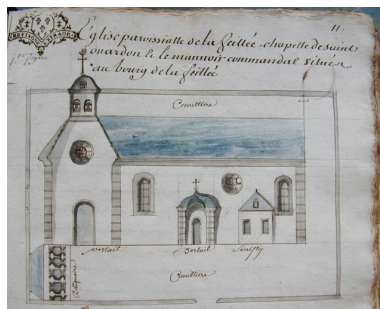 11.
Eglise paroissialle de la feillée, chapelle de saint
houardon & le mannoir commandal situez
au bourg de la feillée
Cimittiere
portail
portail
Cimittiere